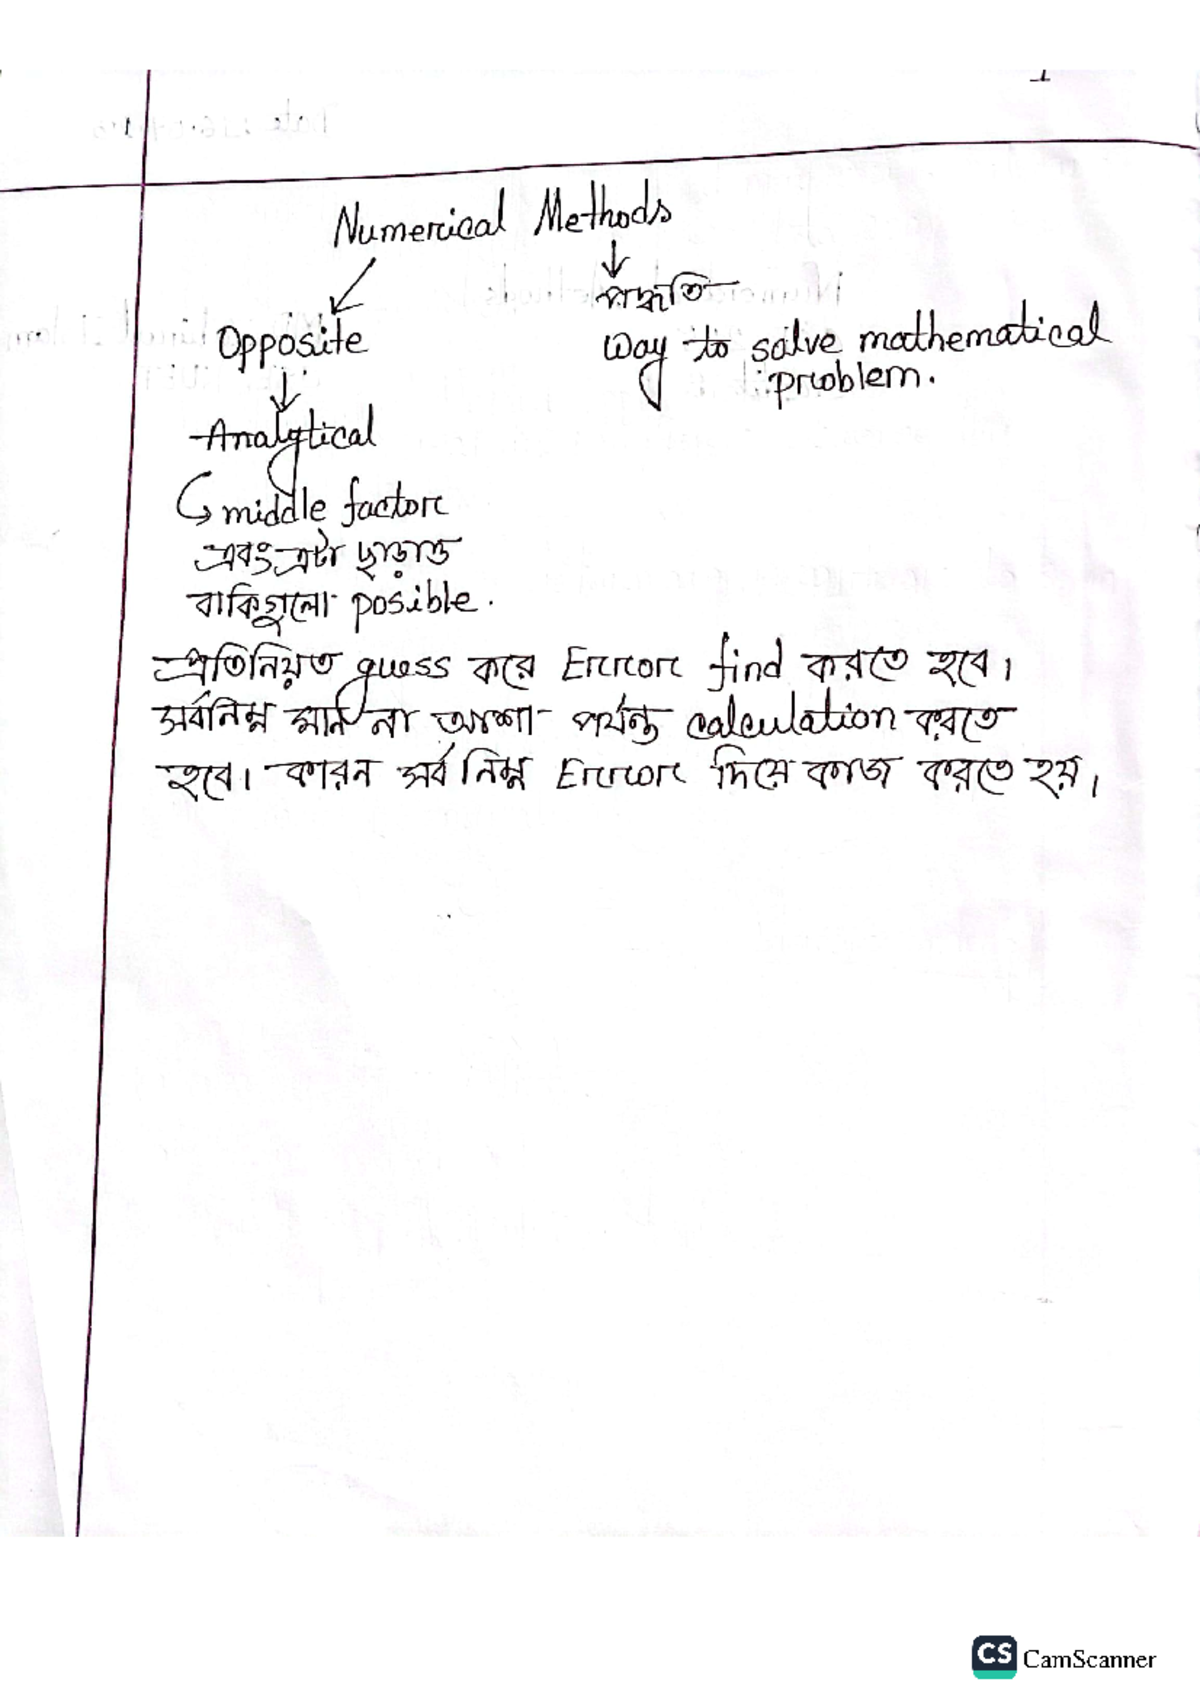 1
Numerical Methods
পদ্ধতি
Opposite
way to solve mathematical
problem.
Analytical
middle factor
এবং এটা ছাড়াও
বাকিগুলো posible.
প্রতিনিয়ত guess করে Error find করতে হবে।
সর্বনিম্ন মান না আশা পর্যন্ত calculation করতে
হবে। কারন সর্বনিম্ন Error দিয়ে কাজ করতে হয়।
CS CamScanner